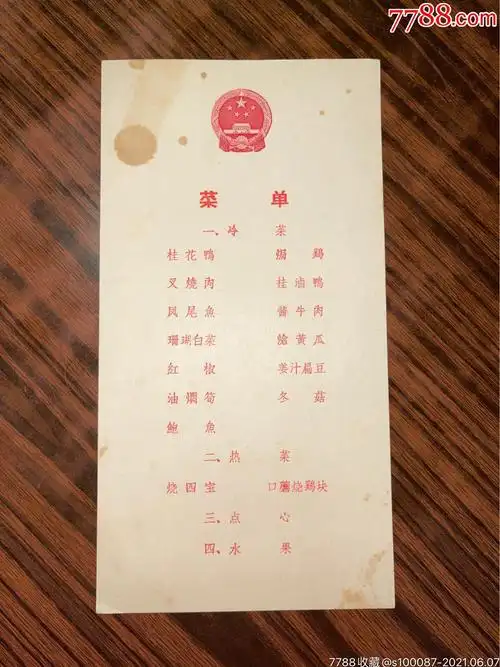 7788.com
菜 单
一、冷 菜
桂花鸭 焗鷄
叉燒肉 桂油鸭
凤尾魚 醬牛肉
珊瑚白菜 熗黃瓜
红椒 姜汁扁豆
油燜筍 冬菇
鲍魚
二、热 菜
烧四宝 口蘑烧鷄块
三、点 心
四、水 果
7788收藏@s100087-2021.06.07